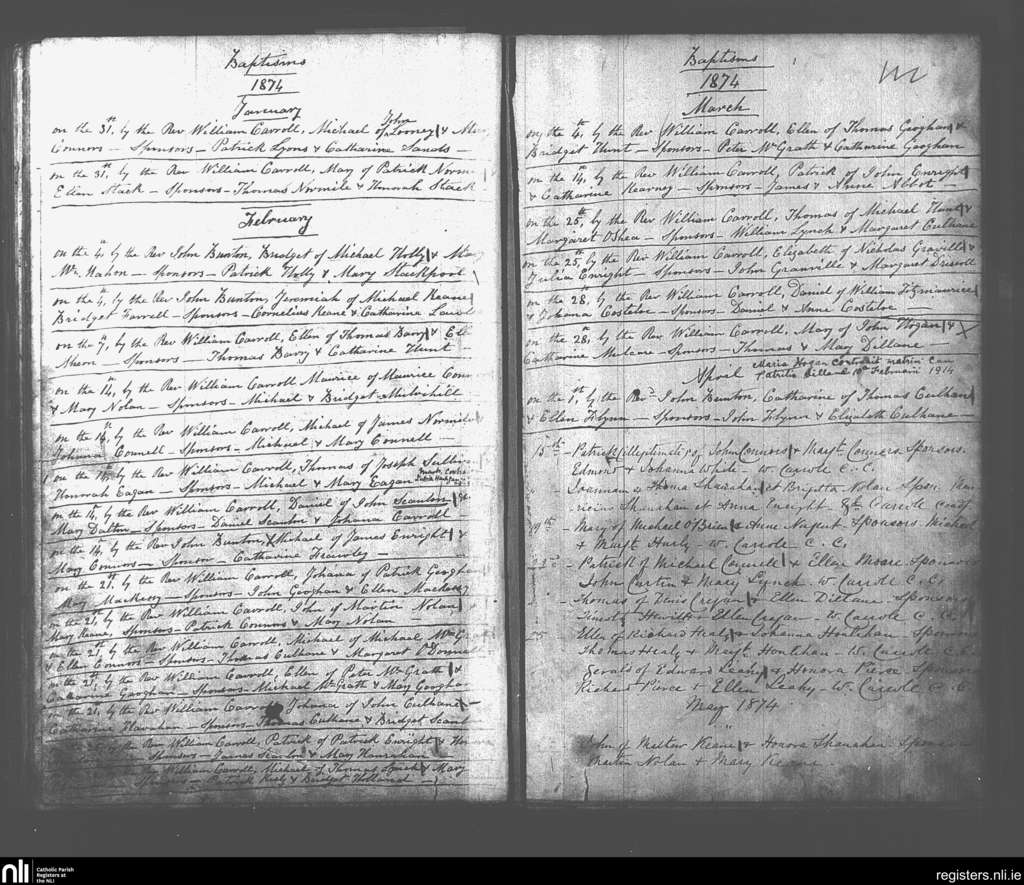 Baptisms
1874
January
on the 31st, by the Rev William Carroll, Michael of John Looney & Mary
Connors – Sponsors – Patrick Lyons & Catharine Sands –
on the 31st, by the Rev William Carroll, Mary of Patrick Norm
Ellen Slack – Sponsors – Thomas Normile & Honorah Slack
February
on the 4th, by the Rev John Bunton, Bridget of Michael Holly & Mary
McMahon – Sponsors – Patrick Holly & Mary Stackpool
on the 4th, by the Rev John Bunton, Jeremiah of Michael Keane
Bridget Farrell – Sponsors – Cornelius Keane & Catharine
on the 7th, by the Rev William Carroll, Ellen of Thomas Barry & Ell
Ahern – Sponsors – Thomas Barry & Catharine Hunt
on the 14th, by the Rev William Carroll Maurice of Maurice Conn
& Mary Nolan – Sponsors – Michael & Bridget Mulvihill
on the 14th, by the Rev William Carroll, Michael of James Normile
Johana Connell – Sponsors – Michael & Mary Connell –
on the by the Rev William Carroll, Thomas of Joseph Sulliv
Honorah Eagan – Sponsors – Michael & Mary Eagan
on the 14, by the Rev William Carroll, Daniel of John Scanlon &
Mary Dalton – Sponsors – Daniel Scanlon & Johana Carroll
on the 14th, by the Rev John Bunton, Michael of James Enright &
Mary Connors – Sponsor – Catharine Frawley –
on the 21st, by the Rev William Carroll, Johana of Patrick Geogh
Mary Mackessy – Sponsors – John Geoghan & Ellen Mackessy
on the 21st, by the Rev William Carroll, John of Martin Nolan &
Mary Keane, Sponsors – Patrick Connors & Mary Nolan –
on the 21st, by the Rev William Carroll, Michael of Michael McG
& Ellen Connors – Sponsors – Thomas Culhane & Margaret O'Donnell
the 21st, by the Rev William Carroll, Ellen of Peter McGrath &
Catharine Geoghan – Sponsors – Michael McGrath & Mary Geoghan
on the 21, by the Rev William Carroll, Johana of John Culhane
Catharine Hanrahan – Sponsors – Thomas Culhane & Bridget Scanl
by the Rev William Carroll, Patrick of Patrick Enright &
Sponsors – James Scanlon & Mary Hanrahan –
William Carroll, Michael of Thomas Lynch & Mary
Sponsors – Patrick & Bridget Holland –
Baptisms
1874
March
on the 4th, by the Rev William Carroll, Ellen of Thomas Geoghan &
Bridget Hunt – Sponsors – Peter McGrath & Catharine Geoghan
on the 14th, by the Rev William Carroll, Patrick of John Enright
& Catharine Kearney – Sponsors – James & Anne Abbot –
on the 25th, by the Rev William Carroll, Thomas of Michael Hunt &
Margaret OShea – Sponsors – William Lynch & Margaret Culhane
on the 25th, by the Rev William Carroll, Elizabeth of Nicholas Granville &
Julia Enright – Sponsors – John Granville & Margaret Driscoll
on the 28th, by the Rev William Carroll, Daniel of William Fitzmaurice
& Johana Costeloe – Sponsors – Daniel & Anne Costeloe
on the 28th, by the Rev William Carroll, Mary of John Hogan &
Catharine Mulane – Sponsors – Thomas & Mary Dillane –
Maria Hogan contraxit matrim cum
April
Patritio Dillane 10th Februarii 1914
on the 1st, by the Revd John Bunton, Catharine of Thomas Culhane
& Ellen Flynn – Sponsors – John Flynn & Elizabeth Culhane –
15th – Patrick (illegitimate) of John Connors & Margt Connors Sponsors.
Edmond & Johanna White – W. Carroll C. C.
Joannam Thoma Shanahan et Brigitta Nolan Spon: Mau
ricius Shanahan et Anna Enright – Carroll
19th – Mary of Michael O'Brien & Anne Nugent Sponsors Michael
& Margt Hurly – W. Carroll C. C.
Patrick of Michael Connell & Ellen Moore Sponsors
John Curtin & Mary Lynch W. Carroll C. C.
Thomas of Denis Cregan & Ellen Dillane Sponsors
Hewitt – Ellen Cregan – W. Carroll C. C.
25 Ellen of Richard Healy & Johanna Hontihan – Sponsors
Thomas Healy & Margt Hontihan – W. Carroll C. C.
Gerald of Edward Leahy & Honora Pierce Sponsors
Richard Pierce & Ellen Leahy – W. Carroll C. C.
May 1874
John of Mathew Keane & Honora Shanahan. Sponsors
Martin Nolan & Mary Keane.
nli
Catholic Parish
Registers at
the NLI
registers.nli.ie